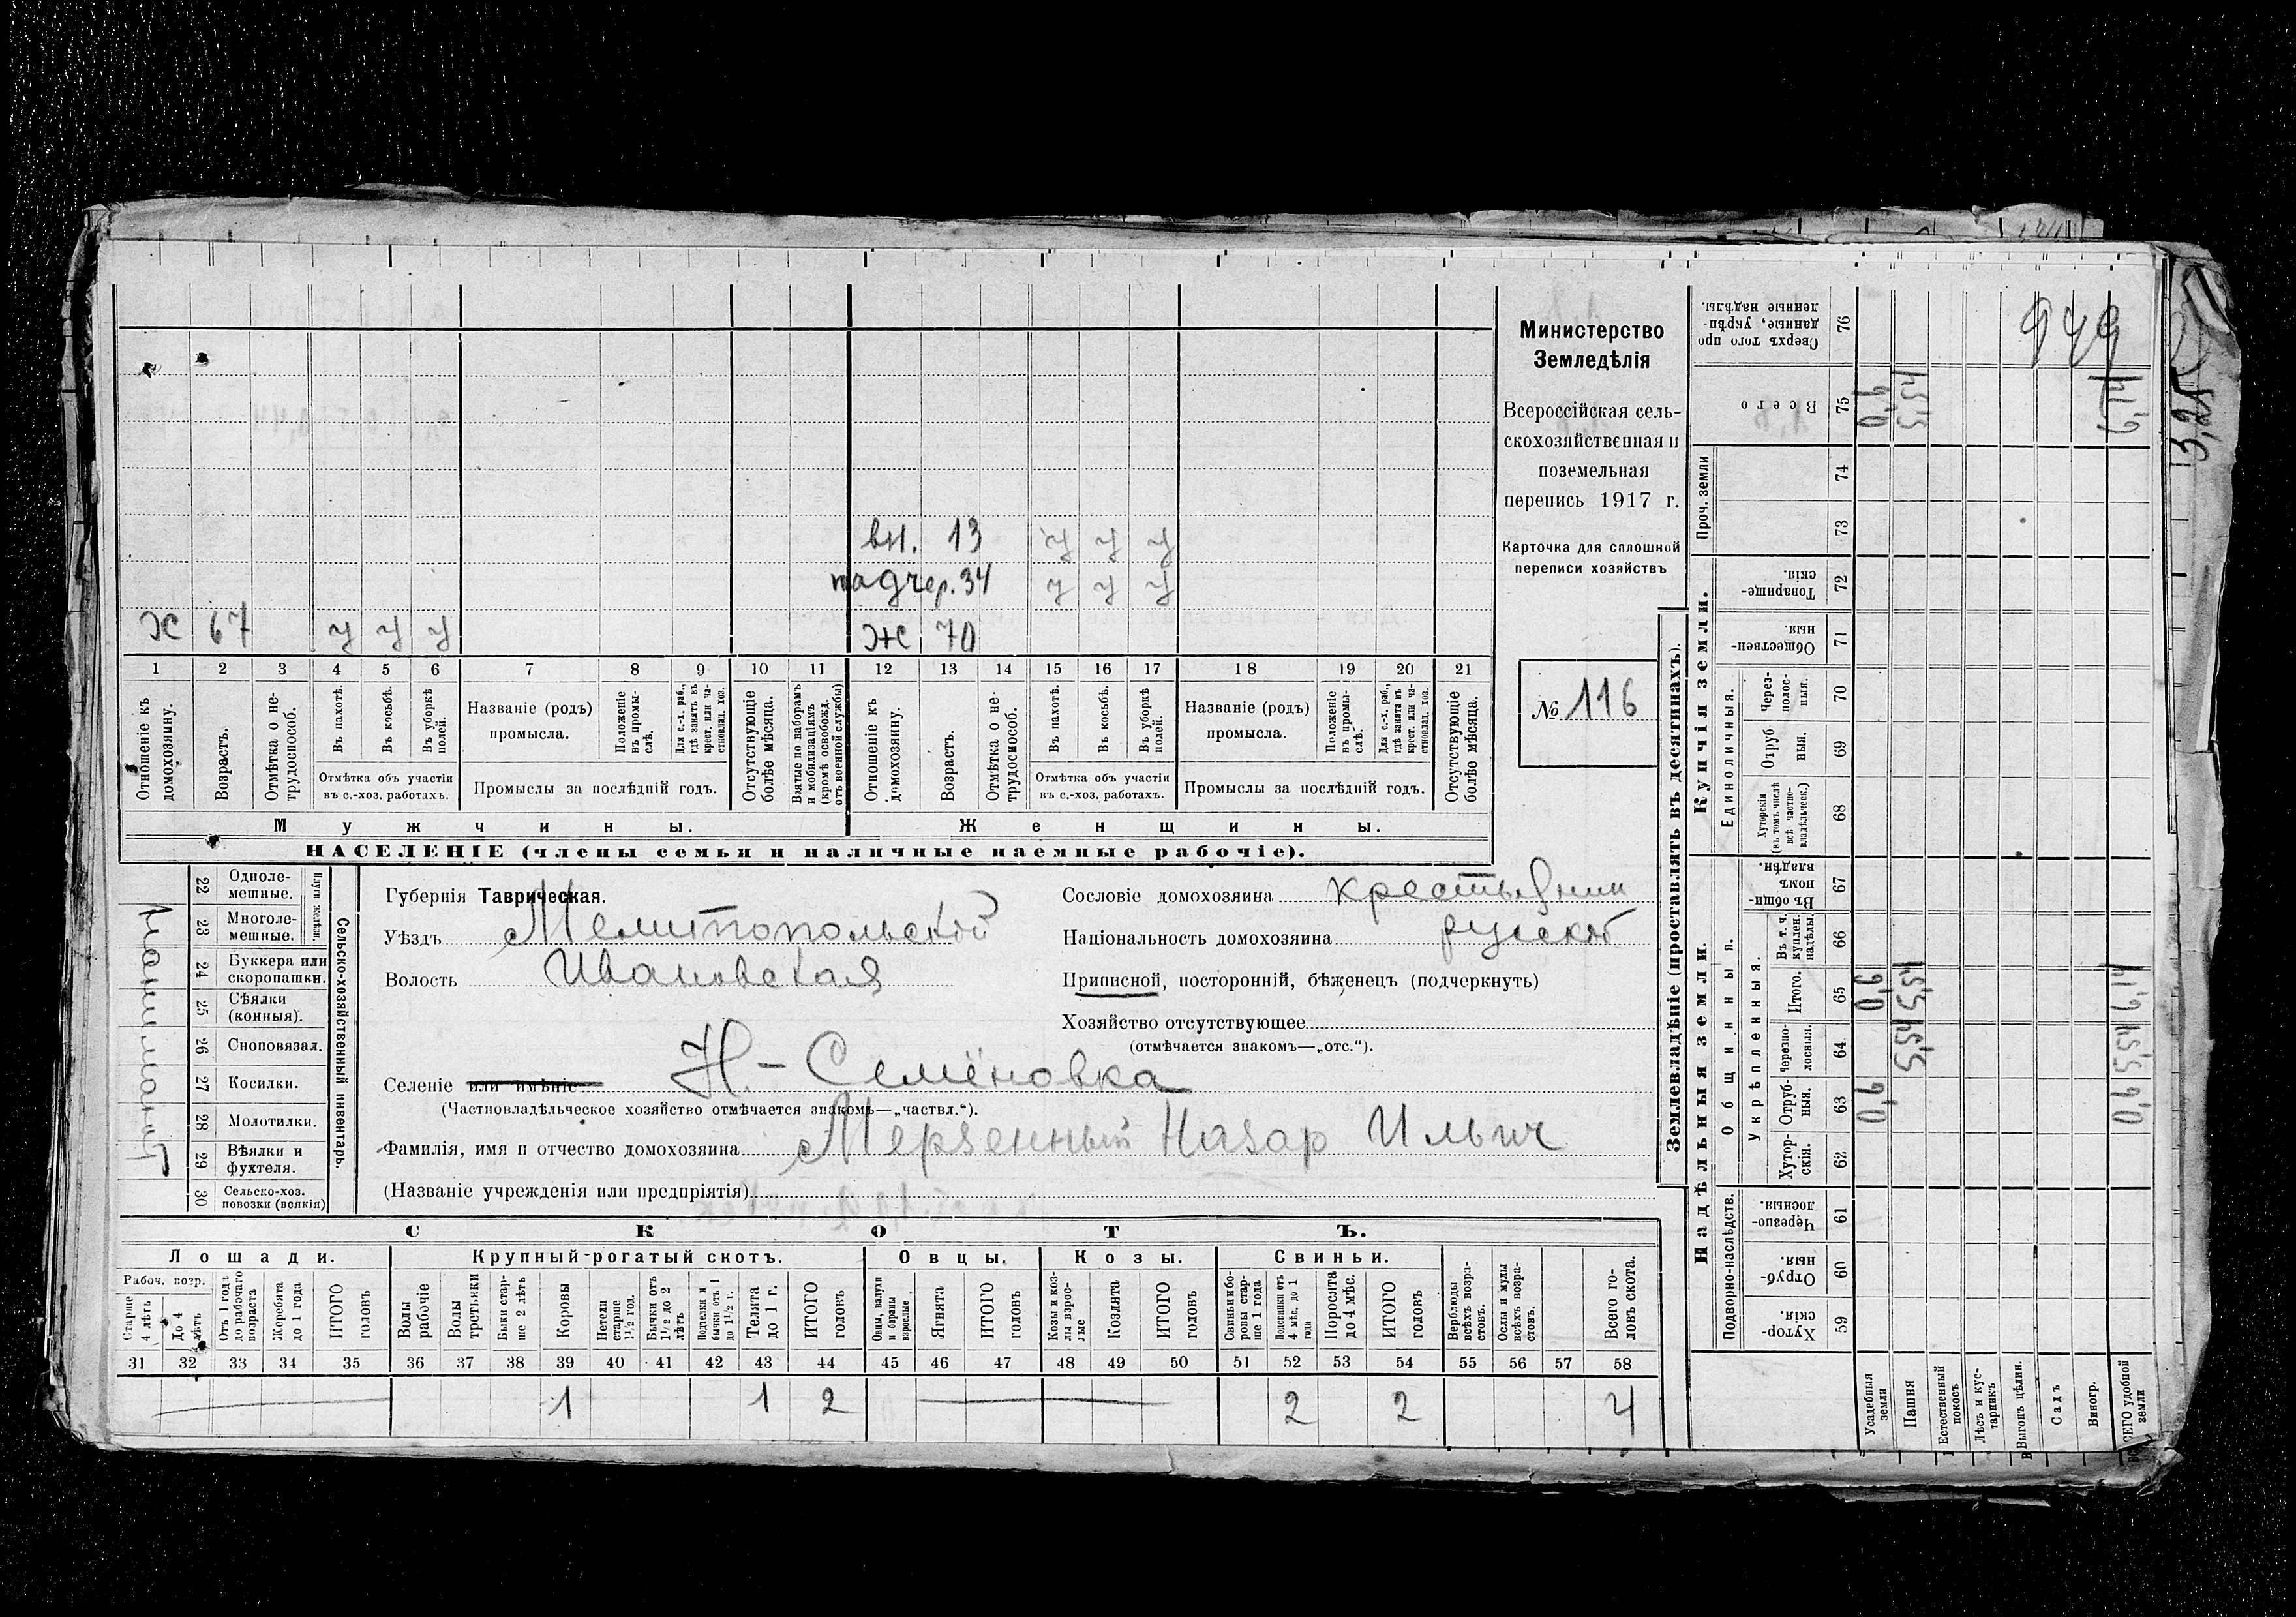 949
Министерство
Земледѣлія
Всероссійская сель-
скохозяйственная и
поземельная
перепись 1917 г.
Карточка для сплошной
переписи хозяйствъ
№ 116
вн. 13 У У У
падчер. 34 У У У
Х 67 У У У Ж 70
1 2 3 4 5 6 7 8 9 10 11 12 13 14 15 16 17 18 19 20 21
Отношеніе къ домохозяину.
Возрастъ.
Отмѣтка о не-трудоспособ.
Въ пахотѣ.
Въ косьбѣ.
Въ уборкѣ полей.
Отмѣтка объ участіи
въ с.-хоз. работахъ.
Названіе (родъ)
промысла.
Положеніе въ промы-слѣ.
Для с.-х. раб., гдѣ занятъ въ крест. или ча-стновлад. хоз.
Промыслы за послѣдній годъ.
Отсутствующіе болѣе мѣсяца.
Взятые по наборамъ и мобилизаціямъ (кромѣ освобожд. отъ военной службы)
Отношеніе къ домохозяину.
Возрастъ.
Отмѣтка о не-трудоспособ.
Въ пахотѣ.
Въ косьбѣ.
Въ уборкѣ полей.
Отмѣтка объ участіи
въ с.-хоз. работахъ.
Названіе (родъ)
промысла.
Положеніе въ промы-слѣ.
Для с.-х. раб., гдѣ занята въ крест. или ча-стновлад. хоз.
Промыслы за послѣдній годъ.
Отсутствующіе болѣе мѣсяца.
Мужчины. Женщины.
НАСЕЛЕНІЕ (члены семьи и наличные наемные рабочіе).
22 Одноле-мешные.
23 Многоле-мешные.
Плуги желѣзн.
24 Буккера или скоропашки.
25 Сѣялки (конныя).
26 Сноповязал.
27 Косилки.
28 Молотилки.
29 Вѣялки и фухтеля.
30 Сельско-хоз. повозки (всякія)
Сельско-хозяйственный инвентарь.
Губернія Таврическая.
Уѣздъ Мелитопольскій
Волость Ивановская
Сословіе домохозяина крестьянин
Національность домохозяина русской
Приписной, посторонній, бѣженецъ (подчеркнуть)
Хозяйство отсутствующее
(отмѣчается знакомъ—„отс.“).
Селеніе или имѣніе Н.-Семёновка
(Частновладѣльческое хозяйство отмѣчается знакомъ—„частвл.“).
Фамилія, имя и отчество домохозяина Мерзенный Назар Ильич
(Названіе учрежденія или предпріятія)
СКОТЪ.
Лошади. Крупный-рогатый скотъ. Овцы. Козы. Свиньи.
Рабоч. возр.
Старше 4 лѣтъ
До 4 лѣтъ
Отъ 1 года до рабочаго возраста
Жеребята до 1 года
ИТОГО головъ
Волы рабочіе
Волы третьяки
Быки стар-ше 2 лѣтъ
Коровы
Нетели старше 1½ год.
Бычки отъ 1½ до 2 лѣтъ
Подтелки и бычки отъ 1 до 1½ г.
Телята до 1 г.
ИТОГО головъ
Овцы, валухи и бараны взрослые
Ягнята
ИТОГО головъ
Козы и коз-лы взрос-лые
Козлята
ИТОГО головъ
Свиньи и бо-ровы стар-ше 1 года
Подсвинки отъ 4 мѣс. до 1 года
Поросята до 4 мѣс.
ИТОГО головъ
Верблюды всѣхъ возра-стовъ.
Ослы и мулы всѣхъ возра-стовъ.
Всего го-ловъ скота.
31 32 33 34 35 36 37 38 39 40 41 42 43 44 45 46 47 48 49 50 51 52 53 54 55 56 57 58
1 1 2 2 2 4
Землевладѣніе (проставлять въ десятинахъ).
Купчія земли.
Надѣльныя земли.
Сверхъ того про-данные, укрѣп-ленные надѣлы. 76
Всего 75 0,6 5,54 6,14
Проч. земли 74
73
Товарище-скія. 72
Обществен-ныя. 71
Единоличныя.
Через-полос-ныя. 70
Отруб-ныя. 69
Хуторскія (въ томъ числѣ всѣ частно-владѣльческ.) 68
Общинныя.
Въ общи-номъ владѣн. 67
Укрѣпленныя.
Въ т. ч. куплен. надѣлы. 66
Итого. 65 0,6 5,54 6,14
Черезпо-лосныя. 64 5,54 5,54
Отруб-ныя. 63 0,6 0,6
Хутор-скія. 62
Подворно-наслѣдств.
Черезпо-лосныя 61
Отруб-ныя. 60
Хутор-скія 59
Усадебныя земли
Пашня
Естественный покосъ
Лѣсъ и кус-тарникъ
Выгонъ цѣлин.
Садъ
Виногр.
ВСЕГО удобной земли